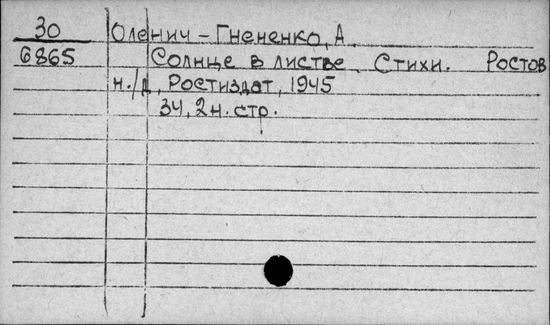 30 Оленич-Гнененко, А.
6865 Солнце в листве. Стихи. Ростов
н./Д, Ростиздат, 1945
34, 2н. стр.